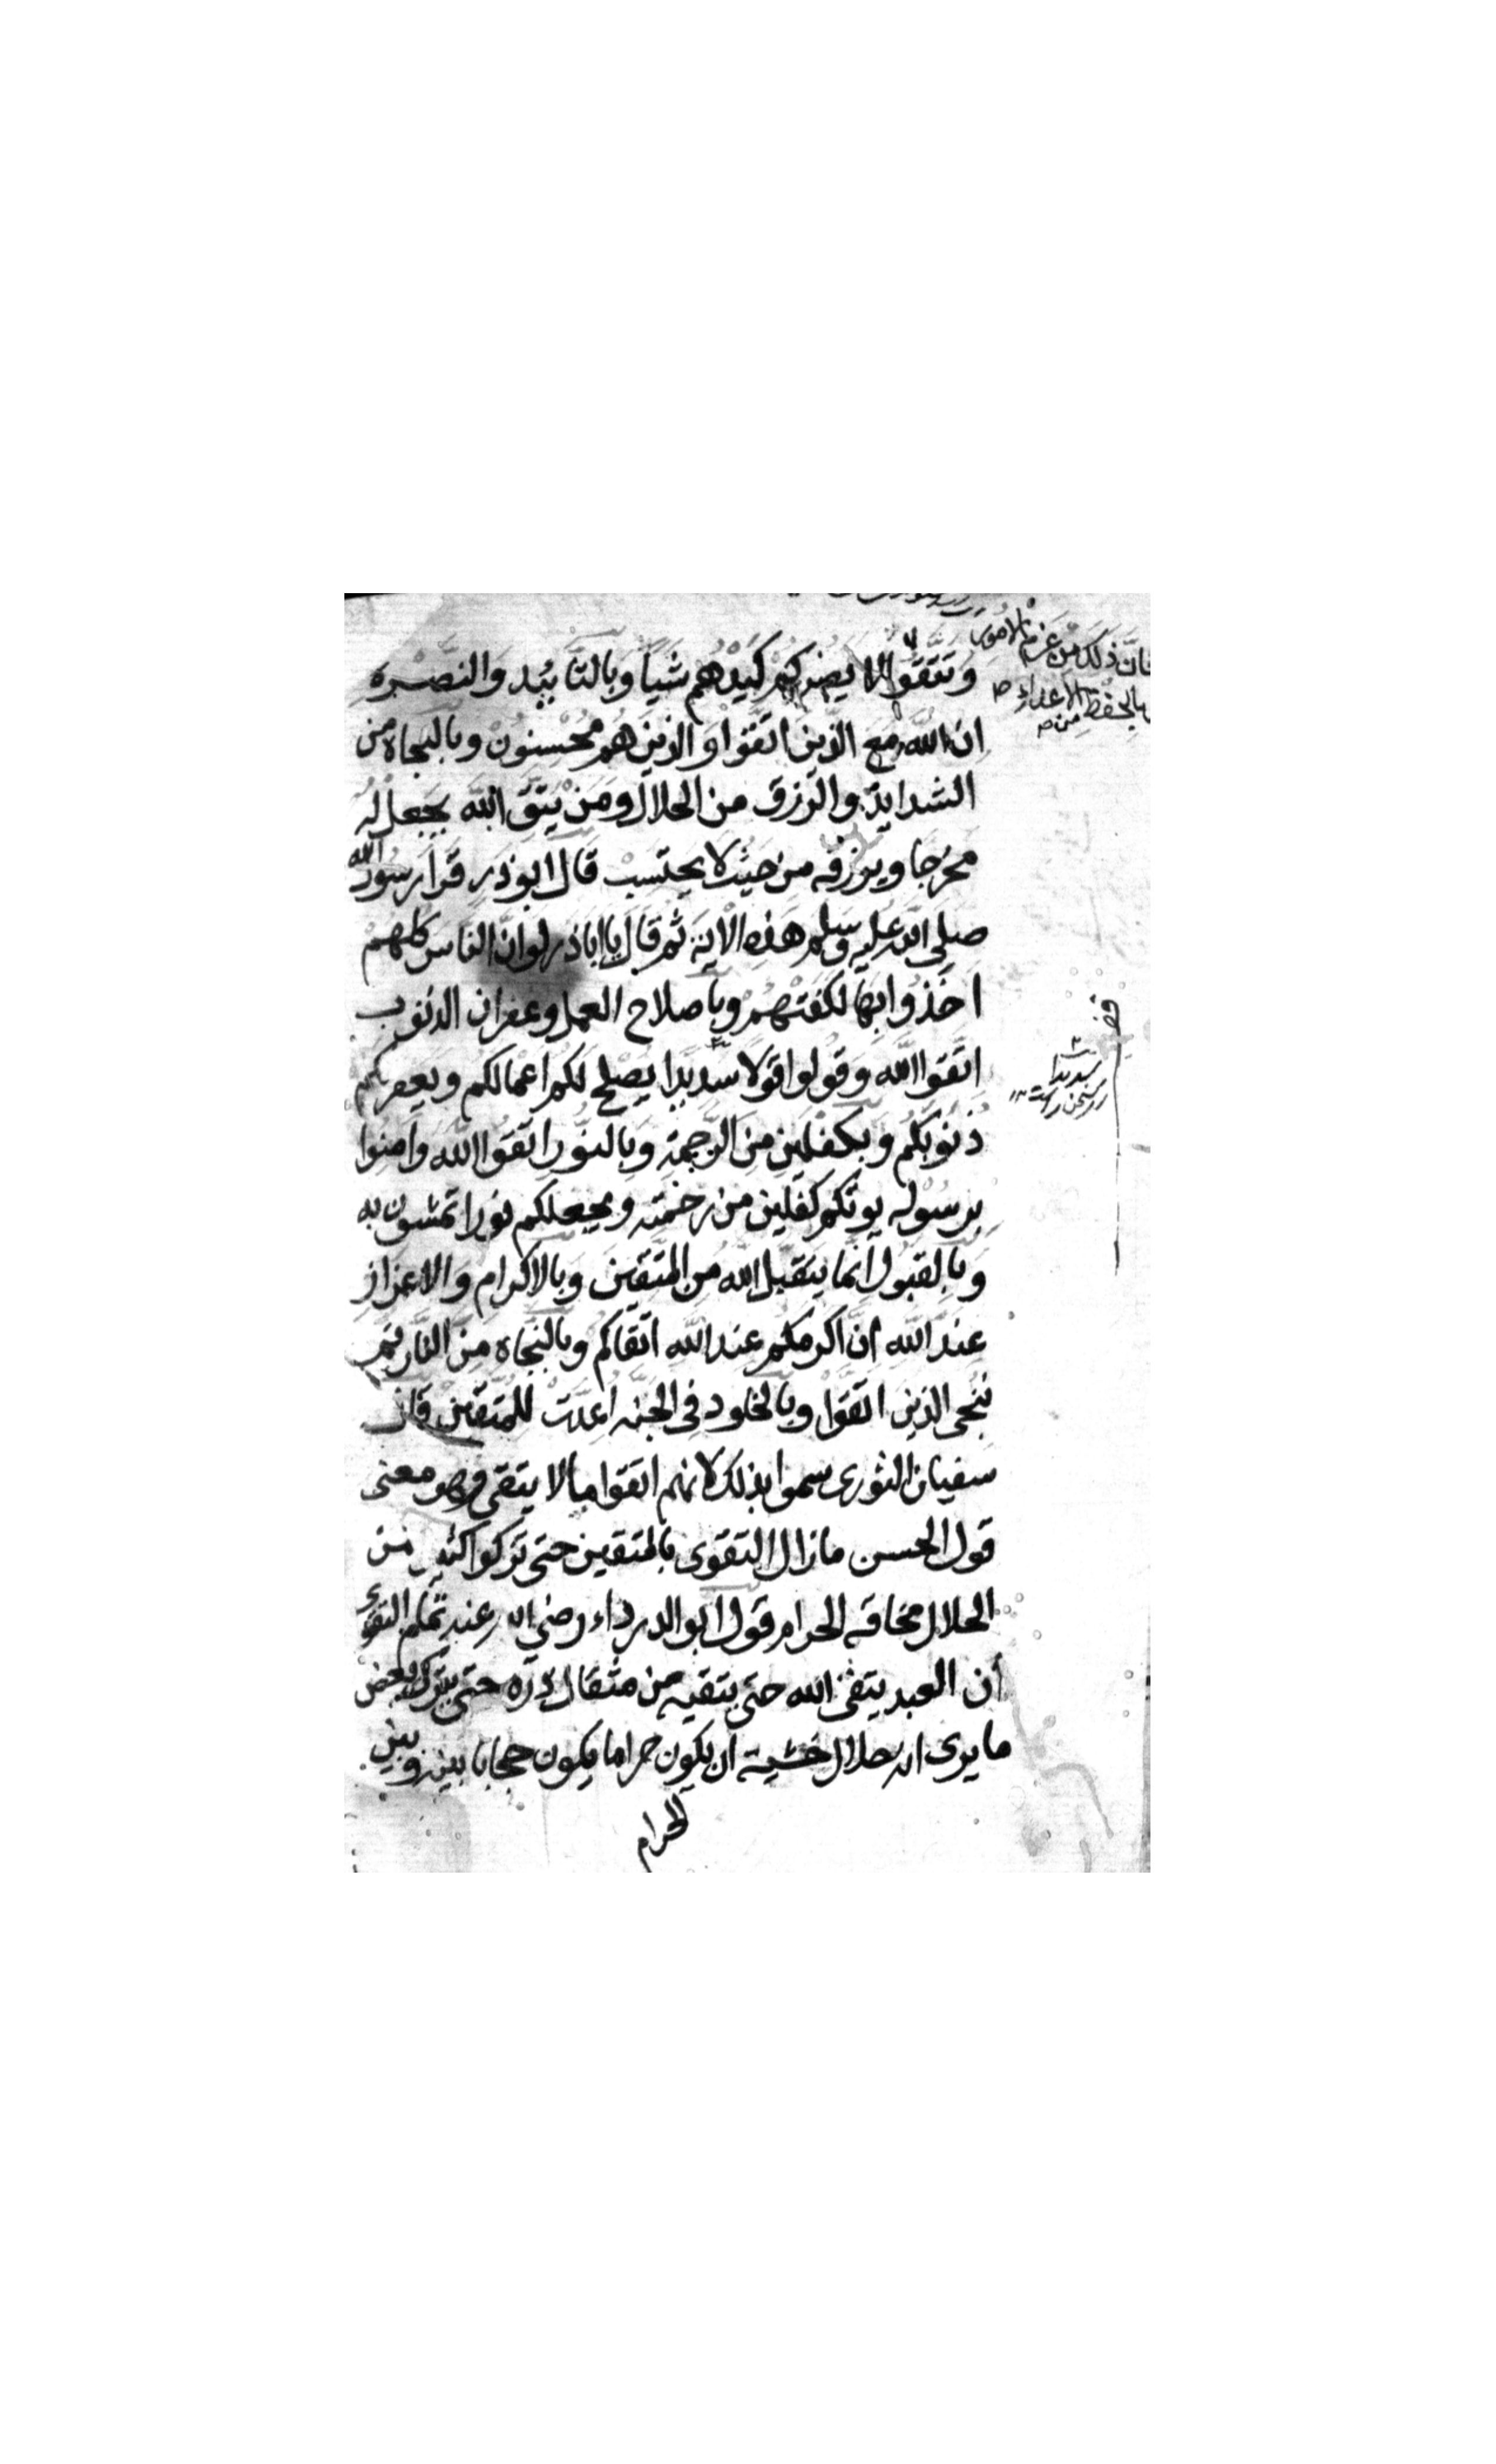 فان ذلك من عزم الامور
بالحفظ من الاعداء
وَتَتَّقُوا لا يضركم كَيْدُهم شيأ وبالتاييد وَالنصْره
ان الله مع الذين اتقوا والذين هم محسنون وبالنجاة من
الشدايد والرزق من الحلال ومن يتق الله يجعل له
مخرجا ويرزقه من حيث لا يحتسب قال ابو ذر قرا رسول الله
صلى الله عليه وسلم هذه الاية ثم قال يا اباذر لو ان الناس كلهم
اخذوا بها لكفتهم وباصلاح العمل وغفران الذنوب
اتقوا الله وقولوا قولا سديدا يصلح لكم اعمالكم ويغفر لكم
ذنوبكم وبكفلين من الرحمة وبالنور اتقوا الله وامنوا
برسوله يوتكم كفلين من رحمته ويجعل لكم نورا تمشون به
وبالقبول انما يتقبل الله من المتقين وبالاكرام والاعزاز
عند الله ان اكرمكم عند الله اتقاكم وبالنجاة من النار ثم
ننجى الذين اتقوا وبالخلود فى الجنه اعدت للمتقين قال
سفيان الثورى سموا بذلك لانهم اتقوا ما لا يتقى وهو معنى
قول الحسن مازال التقوى بالمتقين حتى تركوا كثير من
الحلال مخافه الحرام قول ابو الدرداء رضى الله عنه تمام التقوى
ان العبد يتقى الله حتى يتقيه من مثقال ذره حتى يترك بعض
ما يرى انه حلال خشية ان يكون حراما يكون حجابا بينه وبين
الحرام
سديدا